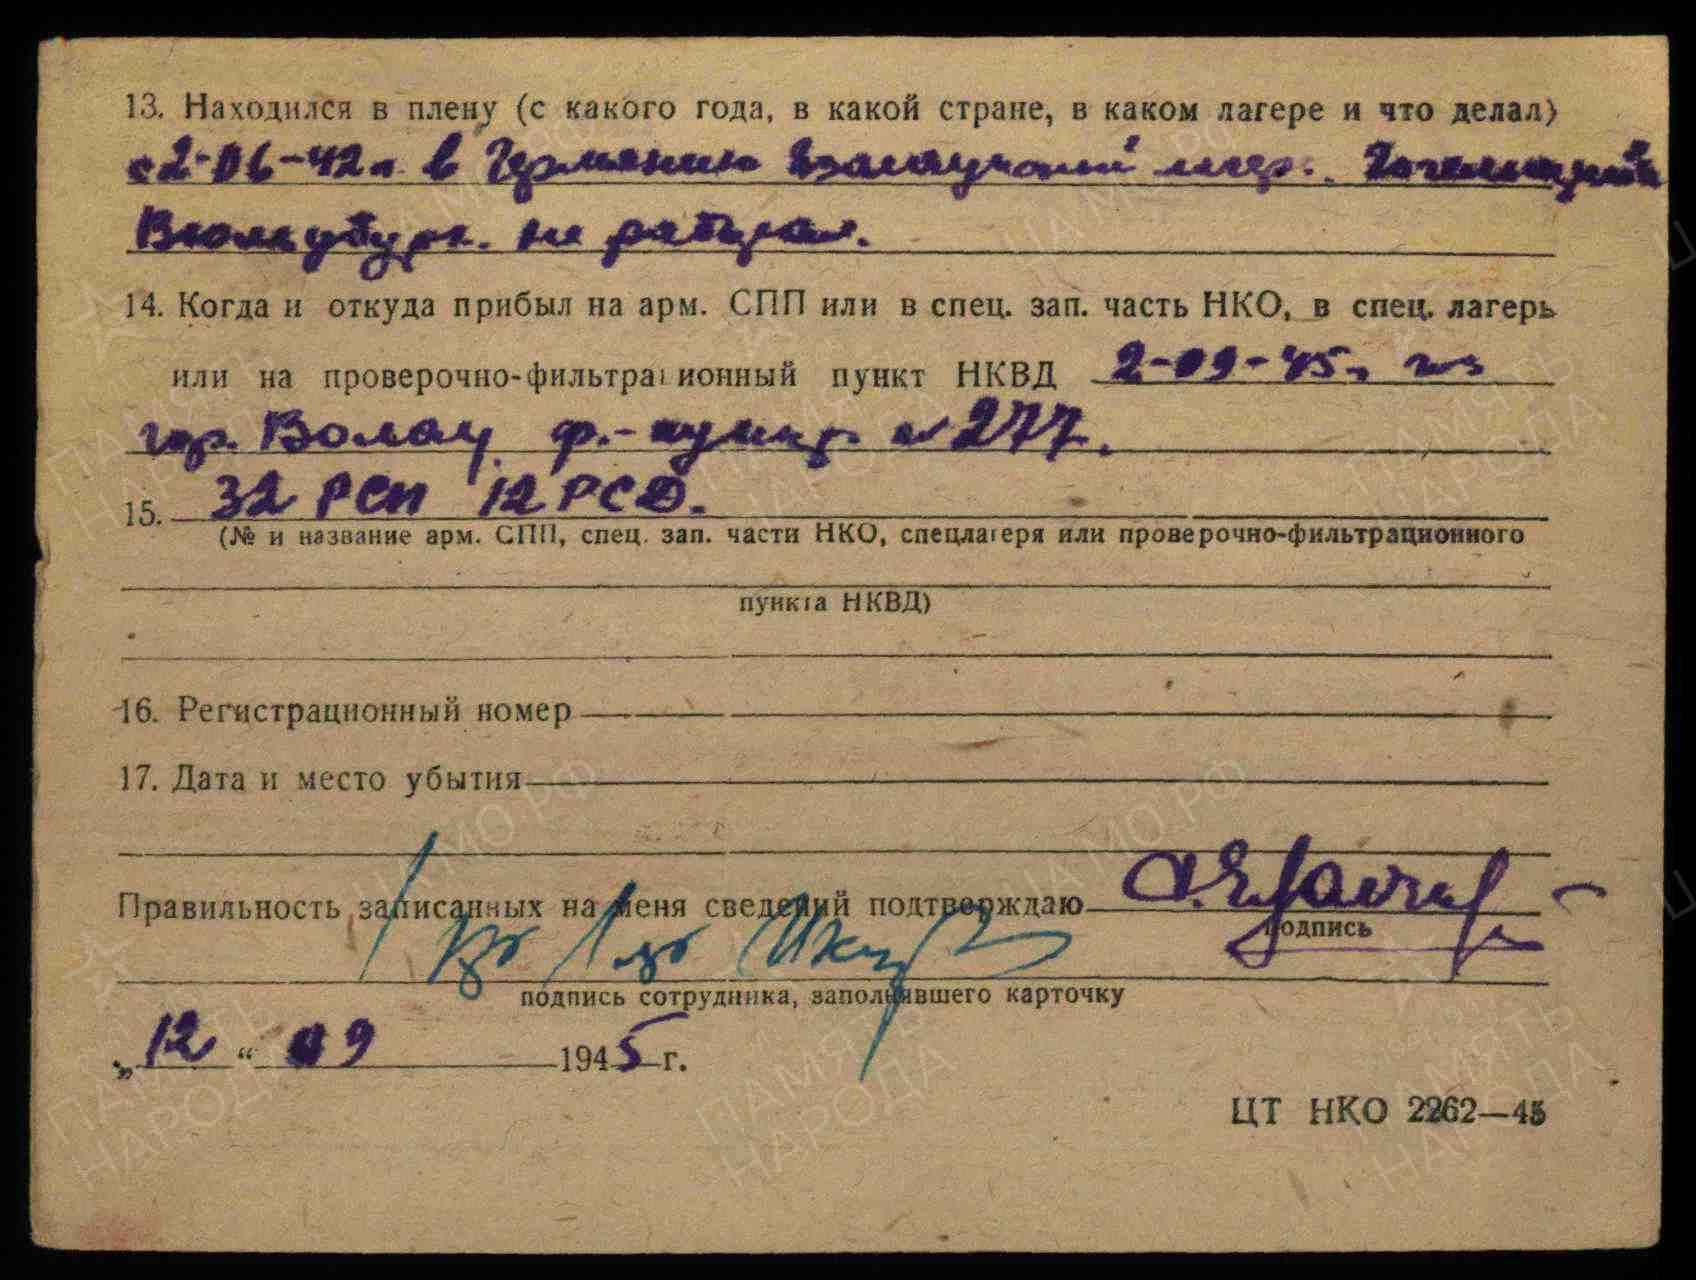 13. Находился в плену (с какого года, в какой стране, в каком лагере и что делал)
с 2-06-42 г. в Германии лагер.
не работал.
14. Когда и откуда прибыл на арм. СПП или в спец. зап. часть НКО, в спец. лагерь
или на проверочно-фильтрационный пункт НКВД 2-09-45 г. из
гор. Волау ф.-пункт № 277.
15. 32 РСП 12 РСД.
(№ и название арм. СПП, спец. зап. части НКО, спецлагеря или проверочно-фильтрационного
пункта НКВД)
16. Регистрационный номер
17. Дата и место убытия
Правильность записанных на меня сведений подтверждаю
подпись
подпись сотрудника, заполнявшего карточку
„12“ 09 1945 г.
ЦТ НКО 2262—45